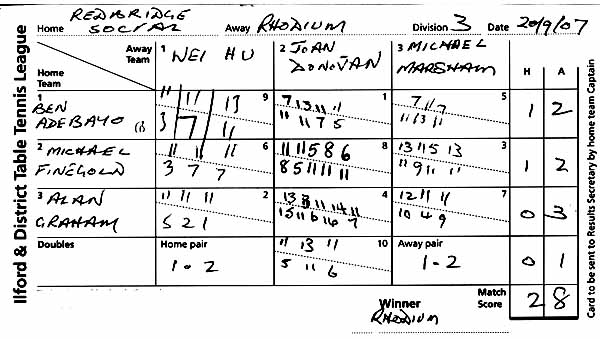 Ilford & District Table Tennis League
Home REDBRIDGE SOCIAL Away RHODIUM Division 3 Date 20/9/07
Away Team
Home Team
1 WEI HU
2 JOAN DONOVAN
3 MICHAEL MARSHAM
H A
1 BEN ADEBAYO (1)
11 11 13 9
3 7 11
7 13 11 11 1
11 11 7 5
7 11 7 5
11 13 11
1 2
2 MICHAEL FINEGOLD
11 11 11 6
3 7 7
11 11 5 8 6 8
8 5 11 11 11
13 11 5 13 3
11 9 11 11
1 2
3 ALAN GRAHAM
11 11 11 2
5 2 1
13 8 11 14 11 4
15 11 6 16 7
12 11 11 7
10 4 9
0 3
Doubles
Home pair
1-2
11 13 11 10
5 11 6
Away pair
1-2
0 1
Winner RHODIUM
Match Score 2 8
Card to be sent to Results Secretary by home team Captain